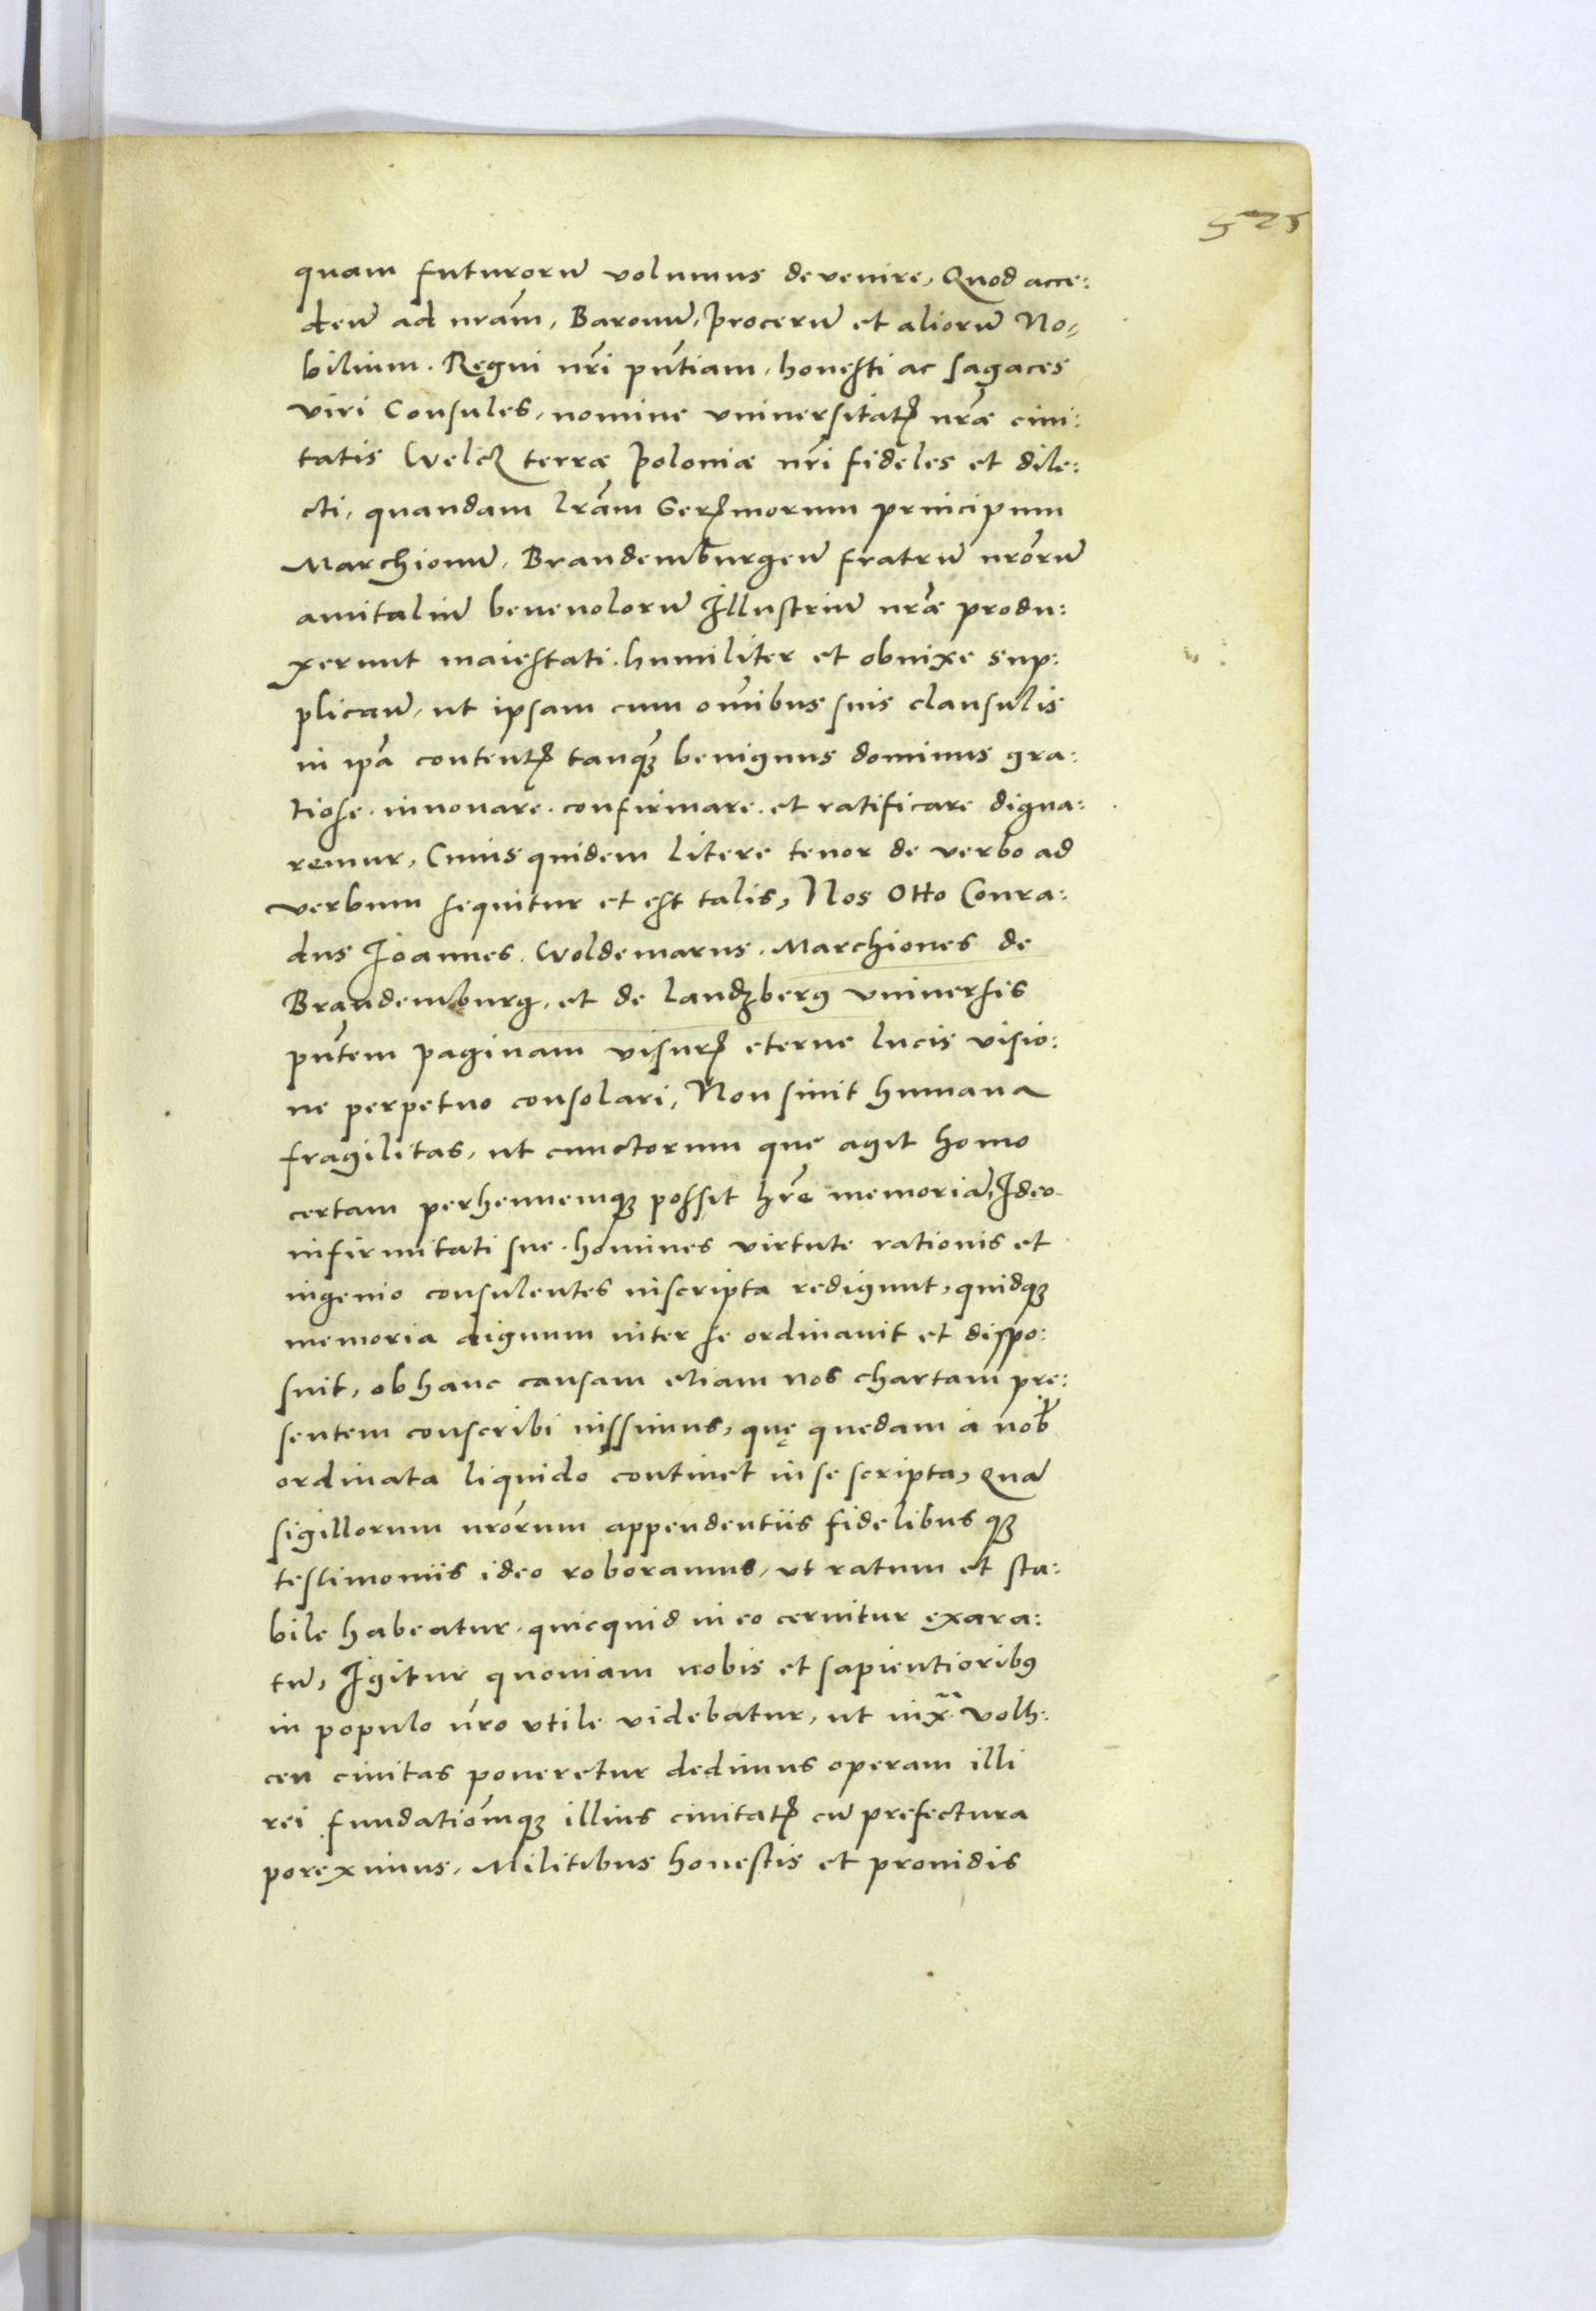 525
quam futurorū volumus devenire, Quod acce:
deñ ad nrãm, Baronū, procerū et aliorū No,
bilium. Regni nr̃i pñtiam, honesti ac sagaces
viri Consules, nomine vniuersitatꝭ nrãe ciui:
tatis Welcz terræ Poloniæ nr̃i fideles et dile:
cti, quandam lrãm Serꝭmorum principum
Marchionū, Brandemburgeñ fratrū nrõrū
amitaliū beneuolorū Illustriū nrãe produ:
xerunt maiestati. humiliter et obnixe sup:
plicañ, ut ipsam cum oñibus suis clausulis
in ip̃a contentꝭ tanqȝ benignus dominus gra:
tiose. innouare. confirmare. et ratificare digna:
remur, Cuius quidem litere tenor de verbo ad
verbum sequitur et est talis, Nos Otto Conra:
dus Joannes. Woldemarus. Marchiones de
Brandemburg, et de landzberg vniuersis
pñtem paginam visurꝭ eterne lucis visio:
ne perpetuo consolari, Non sinit humana
fragilitas, ut cunctorum que agit homo
certam perhennemqȝ possit hr̃e memoriã, Ideo
infirmitati sue. homines virtute rationis et
ingenio consulentes inscripta redigunt, quidqȝ
memoria dignum inter se ordinauit et dispo:
suit, ob hanc causam etiam nos chartam pre:
sentem conscribi iussimus, quę quedam à nob̃
ordinata liquido continet in se scripta, Quã
sigillorum nrõrum appendentiis fidelibus qȝ
testimoniis ideo roboramus, vt ratum et sta:
bile habeatur. quicquid in eo cernitur exara:
tū, Igitur quoniam nobis et sapientioribꝰ
in populo nr̃o vtile videbatur, ut iuxᵃ Volh:
cen ciuitas poneretur dedimus operam illi
rei fundatiõmqȝ illius ciuitatꝭ cū prefectura
poreximus, Militibus honestis et prouidis